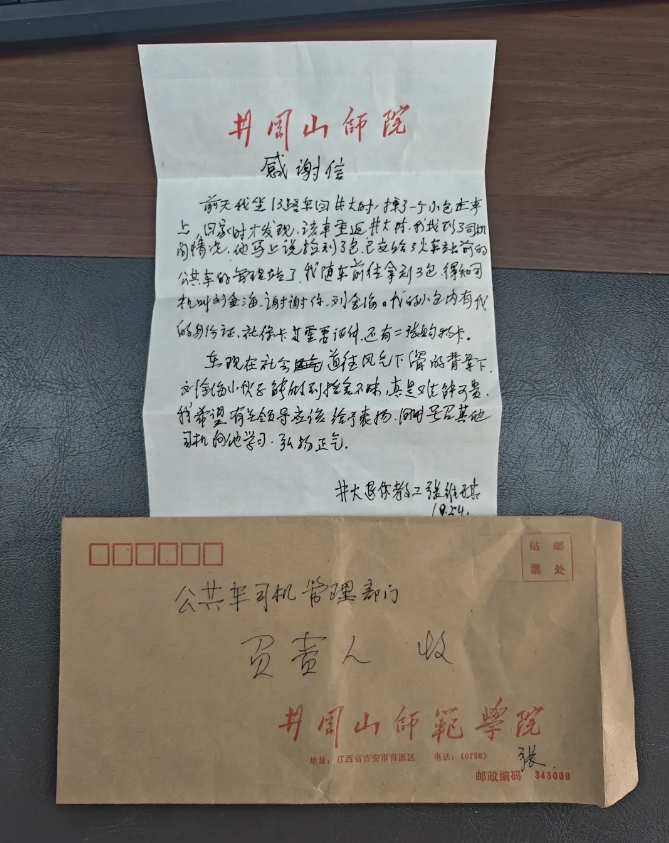 井岡山师院
感谢信
前天我坐13路车回井大时，掉了一个小包在车
上，回家时才发现。该车重返井大时，我找到了司机
问情况，他马上说捡到了包，已交给了火车站前的
公共车的管理站了，我随车前往拿到了包，得知司
机叫刘金海，谢谢你，刘金海。我的小包内有我
的身份证、社保卡等重要证件，还有二张购物卡。
在现在社会道德风气下滑的背景下，
刘金海小伙子能做到拾金不昧，真是难能可贵，
我希望有关领导应该给予表扬，同时号召其他
司机向他学习，弘扬正气。
井大退休教工 张维
10.24.
贴 邮
票 处
公共车司机管理部门
负责人 收
井岡山师範學院
地址：江西省吉安市青原区 电话：(0796)
张
邮政编码 343009